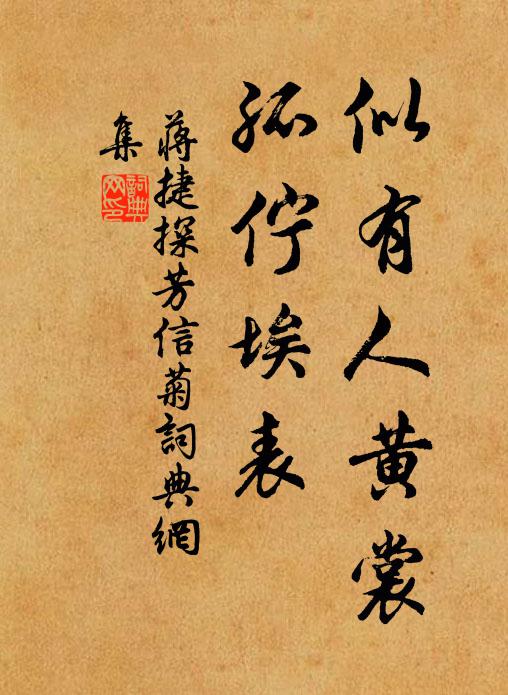 似有人黄裳
孤伫埃表
蔣捷探芳信菊詞典網
集
詞典网印